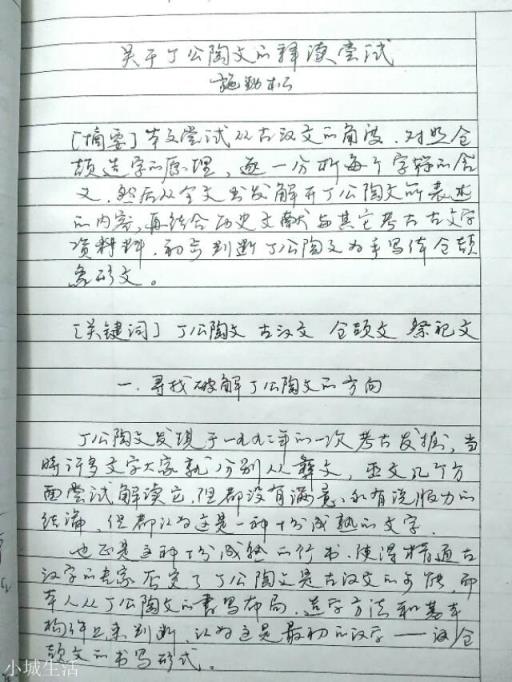 关于丁公陶文的释读尝试
施勁松
[摘要]本文尝试从古汉文的角度，对照仓
颉造字的原理，逐一分析每个字符的含
义，然后从全文出发解开丁公陶文所表述
的内容，再结合历史文献与其它考古古文字
资料料，初步判断丁公陶文为手写体仓颉
象形文。
[关键词] 丁公陶文 古汉文 仓颉文 祭祀文
一、寻找破解丁公陶文的方向
丁公陶文发现于一九九二年的一次考古发掘，当
時许多文字大家就分别从彝文，亚文几个方
面尝试解读它，但都没有满意、和有说服力的
结论，但都认为这是一种十分成熟的文字。
也正是这种十分成熟的行书，使得精通古
汉字的专家否定了丁公陶文是古汉文的可能，而
本人从丁公陶文的書写布局，造字方法和基本
构件上来判断，认为这是最初的汉字——该仓
颉文的书写形式。
小城生活